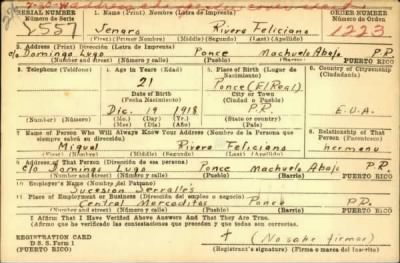 SERIAL NUMBER 1. Name (Print) Nombre (Letra de Imprenta) ORDER NUMBER
Número de Serie Número de Orden
557 Jenaro Rivera Feliciano 1223
(First) (Primer Nombre) (Middle) (Segundo) (Last) (Apellido)
2. Address (Print) Dirección (Letra de Imprenta)
c/o Domingo Lugo Ponce Machuelo Abajo P.R.
(Number and street) (Número y calle) (Pueblo) (Barrio) PUERTO RICO
3. Telephone (Teléfono) 4. Age in Years (Edad) 5. Place of Birth (Lugar de Nacimiento) 6. Country of Citizenship (Ciudadanía)
21 Ponce (El Real)
Date of Birth (Town or City)
(Fecha Nacimiento) (Ciudad o Pueblo)
Dic. 19 1918 P.R. E.U.A.
(Mo.) (Day) (Yr.) (State or country)
(Mes) (Día) (Año) (Estado o país)
7. Name of Person Who Will Always Know Your Address (Nombre de la Persona que siempre sabrá su dirección) 8. Relationship of That Person (Parentesco)
Miguel Rivera Feliciano hermano
(First) (Primer Nombre) (Middle) (Segundo) (Last) (Apellido)
9. Address of That Person (Dirección de esa persona)
c/o Domingo Lugo Ponce Machuelo Abajo P.R.
(Number and street) (Número y calle) (Pueblo) (Barrio) PUERTO RICO
10. Employer's Name (Nombre del Patrono)
Sucesion Serrallés
11. Place of Employment or Business (Dirección del empleo o negocio)
Central Mercedita Ponce P.R.
(Number and street) (Número y calle) (Pueblo) (Barrio) PUERTO RICO
I Affirm That I Have Verified Above Answers And That They Are True.
(Afirmo que he verificado las contestaciones que preceden y que todas son correctas.)
REGISTRATION CARD
D. S. S. Form 1
(PUERTO RICO)
+ (No sabe firmar)
(Registrant's signature) (Firma o marca del inscrito)